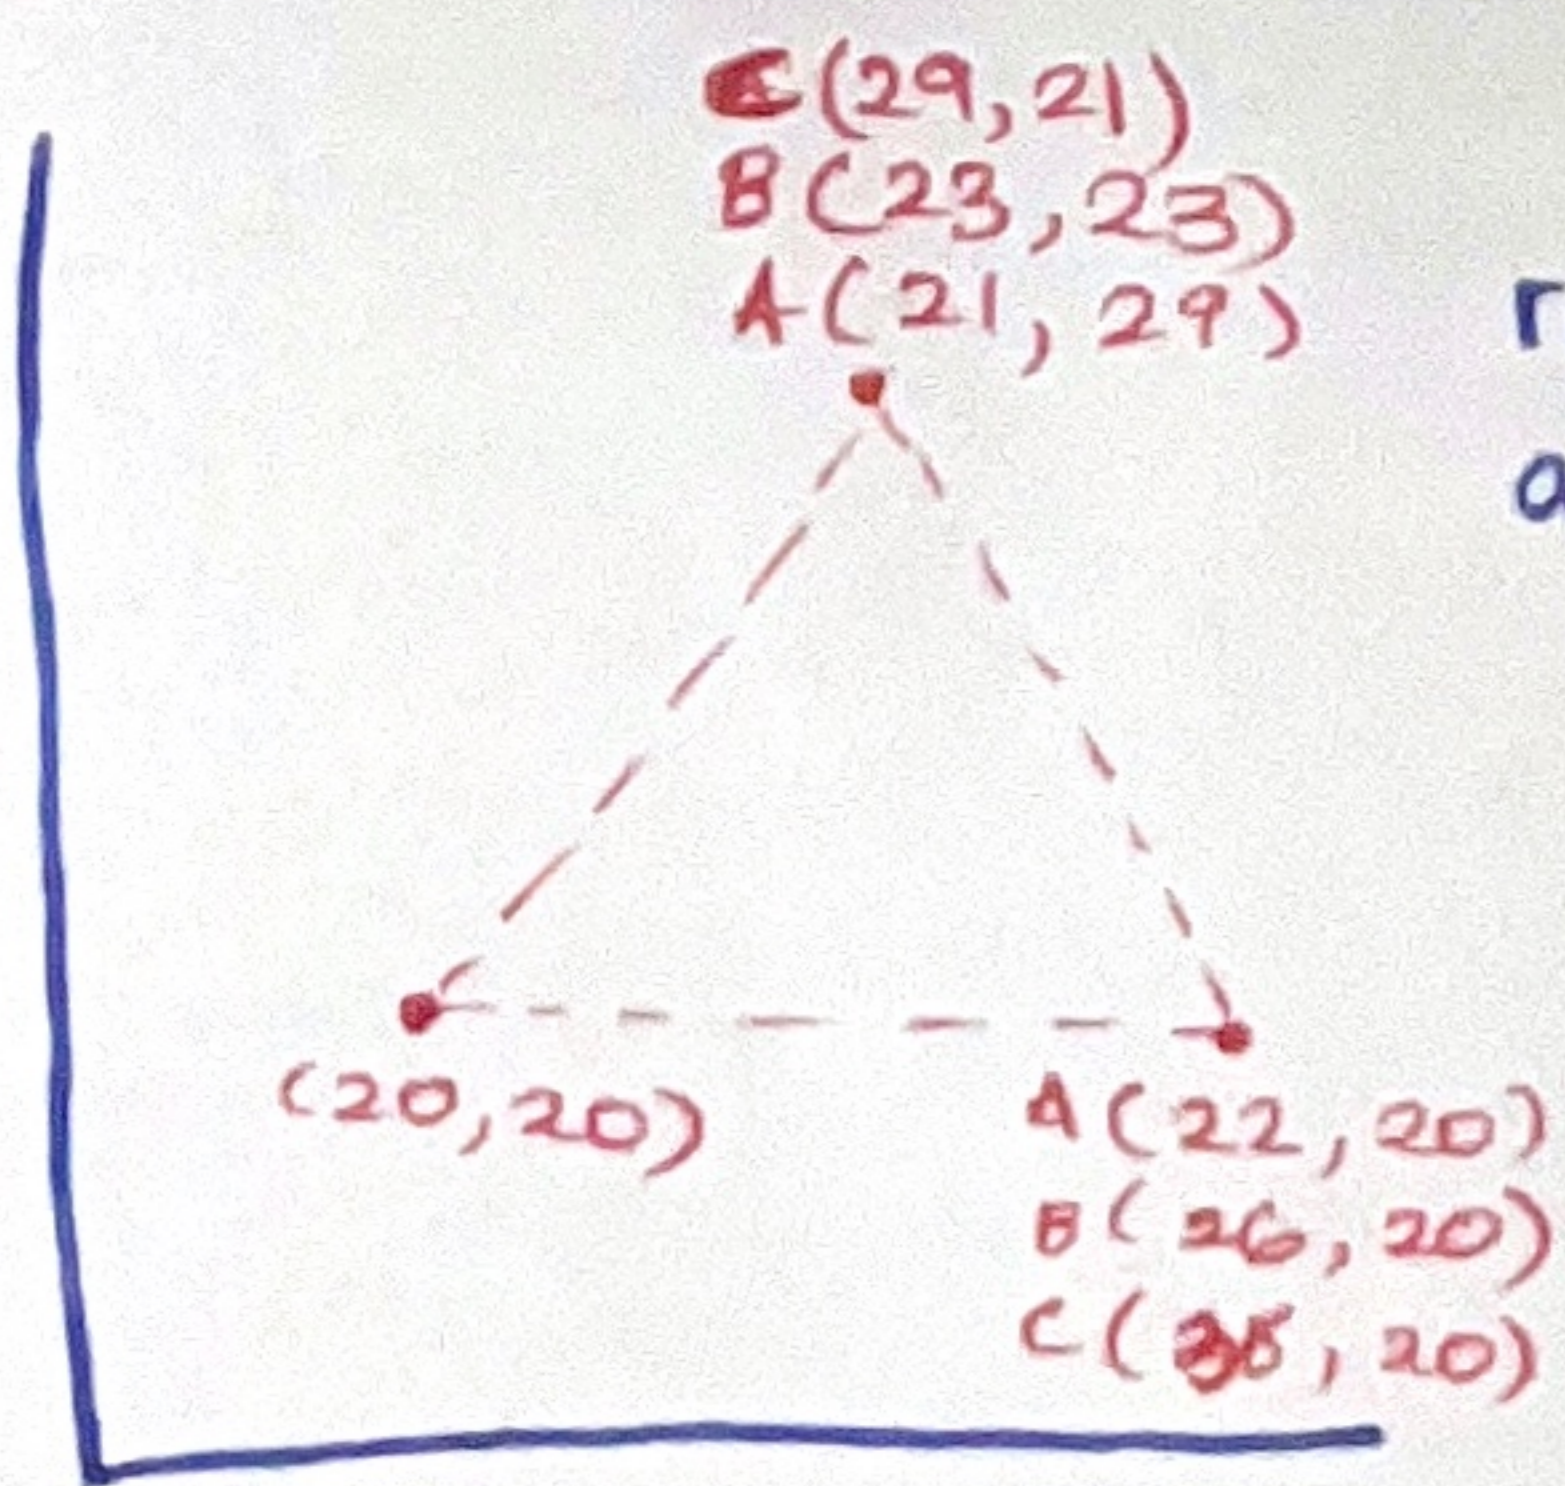 C(29,21)
B(23,23)
A(21,29)
(20,20)
A(22,20)
B(26,20)
C(35,20)